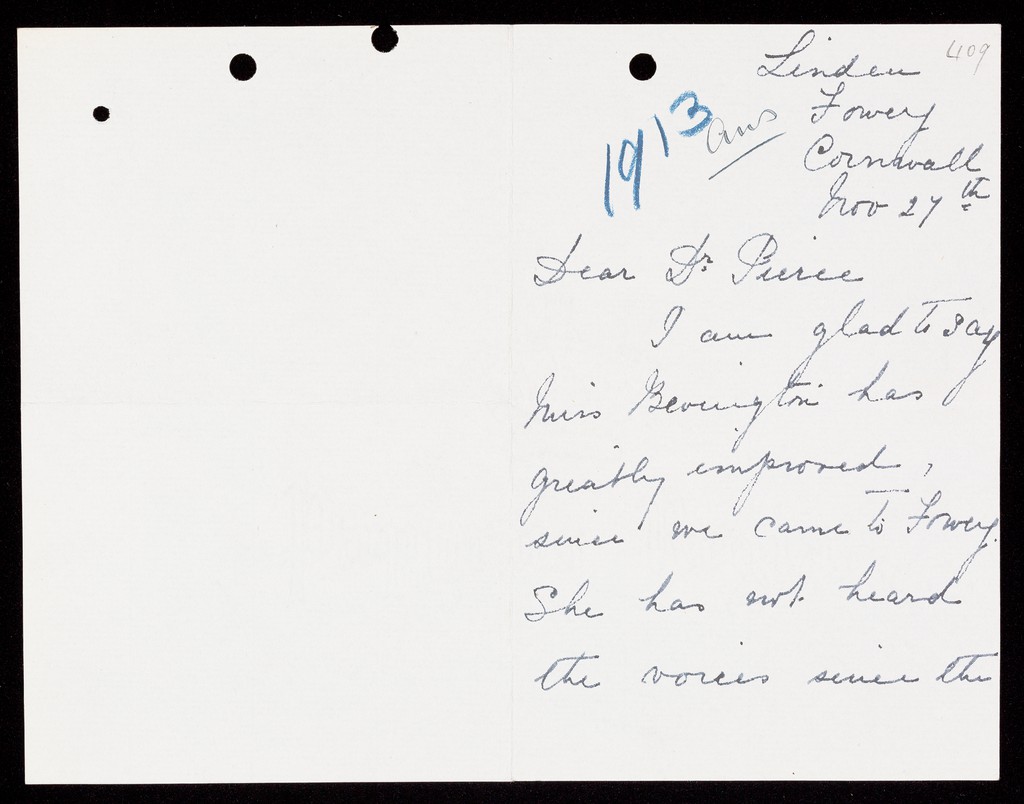 409
Linden
Fowey
Cornwall
Nov 27th
1913
ans
Dear Dr. Pierce
I am glad to say
Miss Bevington has
greatly improved,
since we came to Fowey.
She has not heard
the voices since the